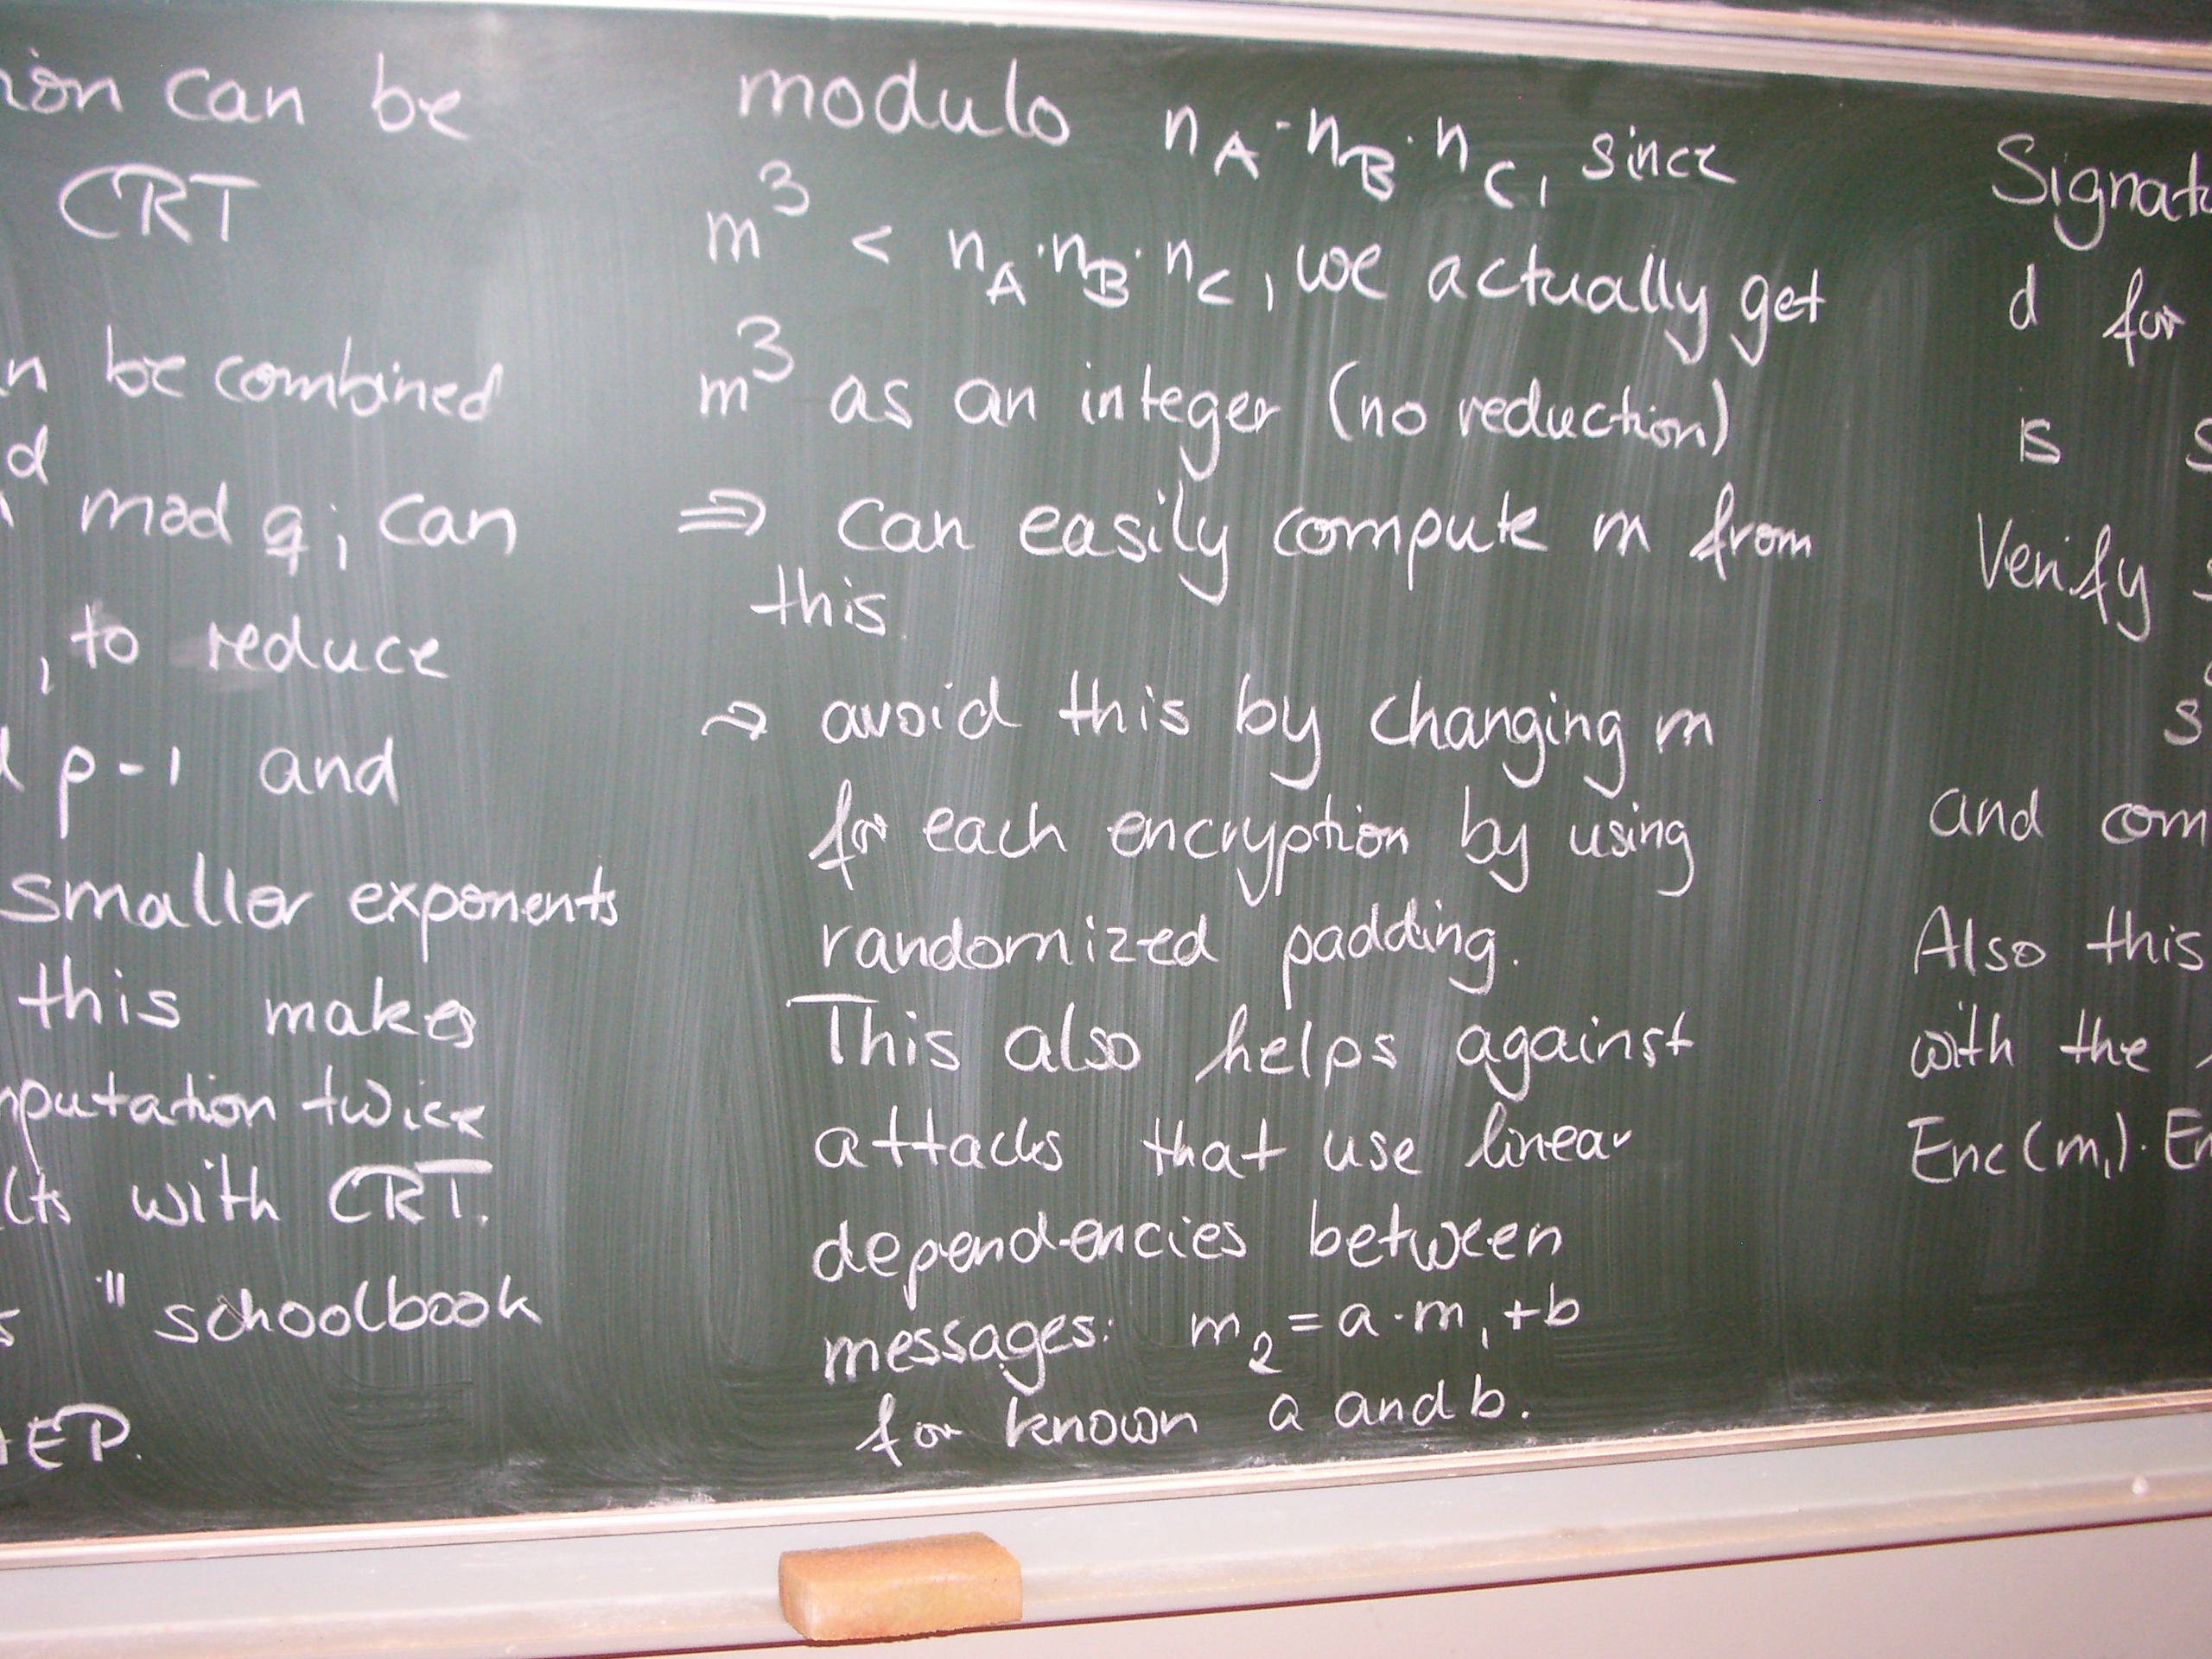 can be
CRT
be combined
d
mod q; can
, to reduce
p-1 and
smaller exponents
this makes
twice
with CRT.
" schoolbook
modulo n_A · n_B · n_C, since
m³ < n_A · n_B · n_C, we actually get
m³ as an integer (no reduction)
⇒ can easily compute m from
this
→ avoid this by changing m
for each encryption by using
randomized padding.
This also helps against
attacks that use linear
dependencies between
messages: m₂ = a · m₁ + b
for known a and b.
d for
is
Verify
s
and com
Also this
with the
Enc(m₁) ·